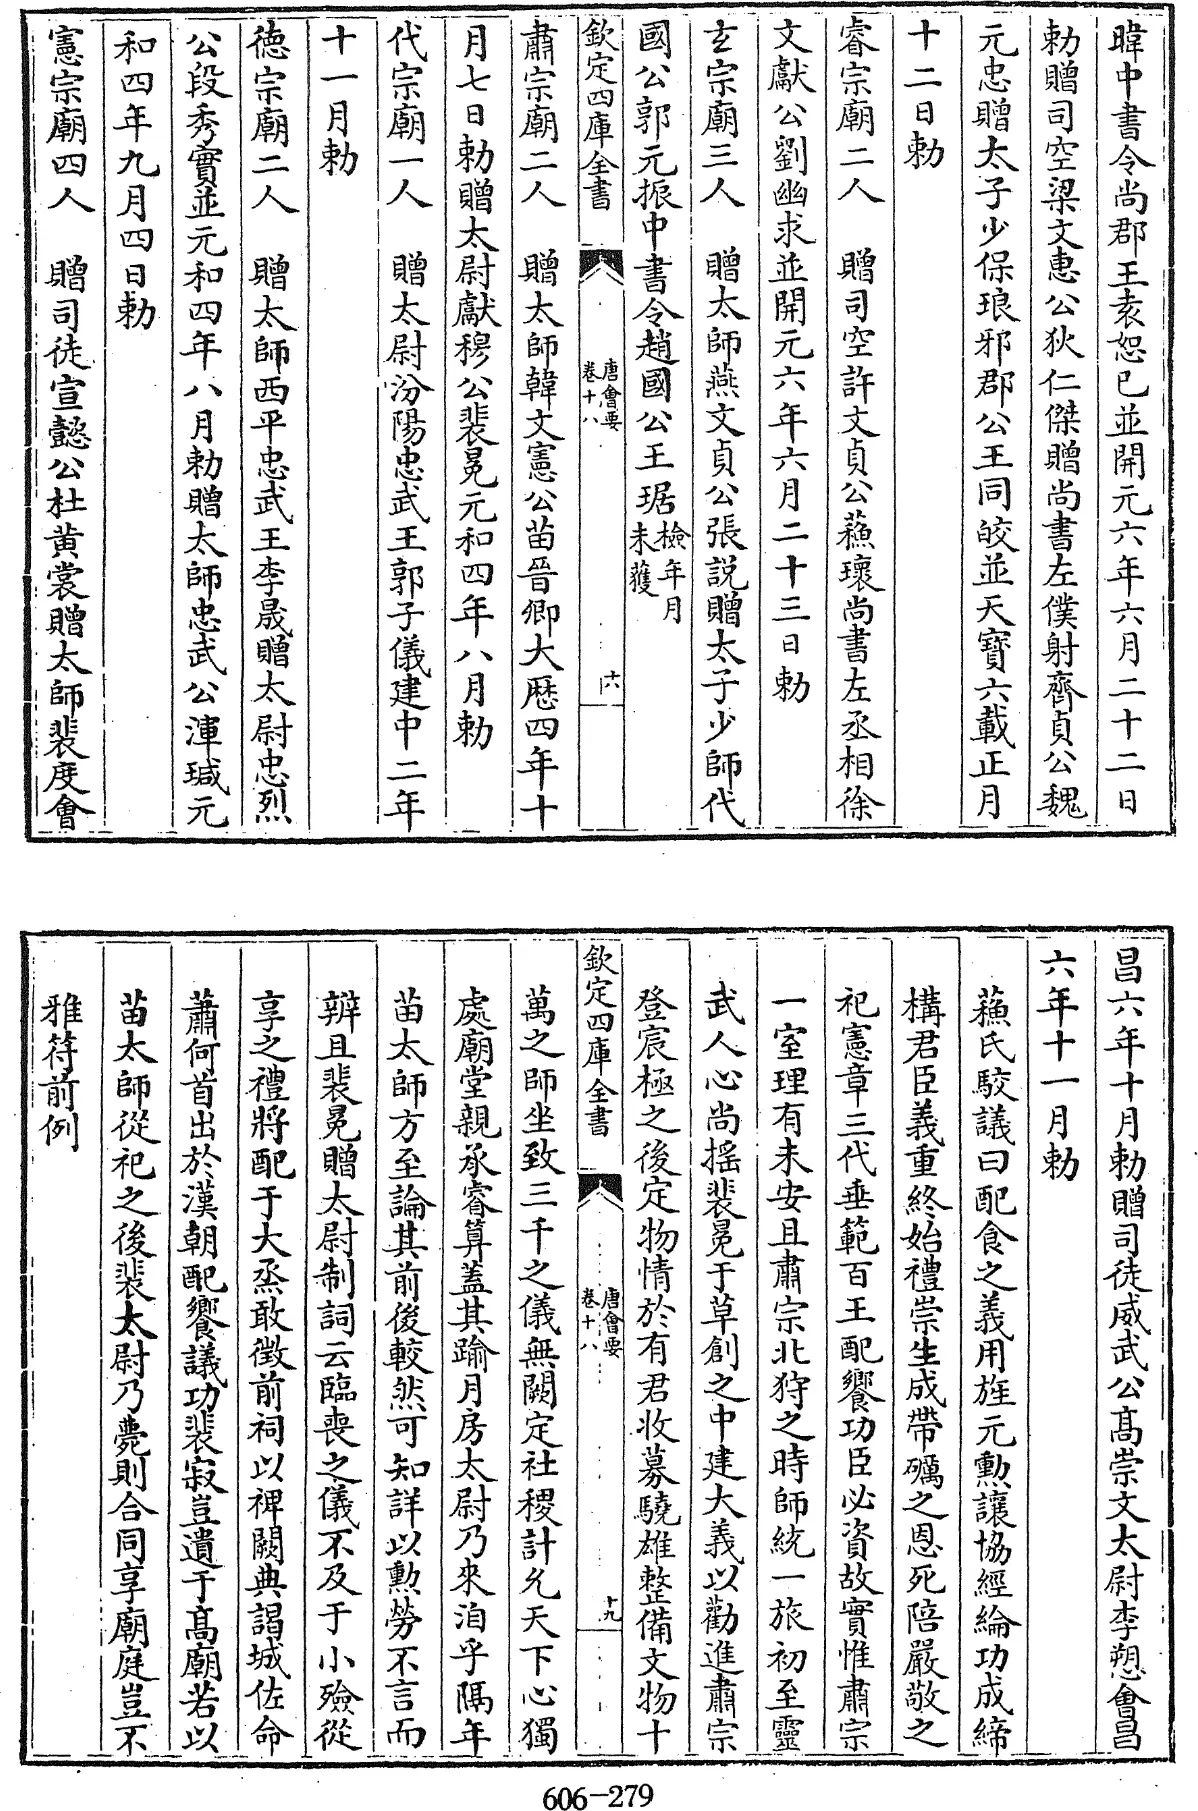 暐中書令尚郡王袁恕已並開元六年六月二十二日
勅贈司空梁文惠公狄仁傑贈尚書左僕射齊貞公魏
元忠贈太子少保琅邪郡公王同皎並天寶六載正月
十二日勅
睿宗廟二人　贈司空許文貞公蘓瓌尚書左丞相徐
文獻公劉幽求並開元六年六月二十三日勅
玄宗廟三人　贈太師燕文貞公張説贈太子少師代
國公郭元振中書令趙國公王琚檢年月未獲
欽定四庫全書　唐會要　卷十八　十八
肅宗廟二人　贈太師韓文憲公苗晉卿大厯四年十
月七日勅贈太尉獻穆公裴冕元和四年八月勅
代宗廟一人　贈太尉汾陽忠武王郭子儀建中二年
十一月勅
德宗廟二人　贈太師西平忠武王李晟贈太尉忠烈
公段秀實並元和四年八月勅贈太師忠武公渾瑊元
和四年九月四日勅
憲宗廟四人　贈司徒宣懿公杜黄裳贈太師裴度會
昌六年十月勅贈司徒威武公髙崇文太尉李愬會昌
六年十一月勅
蘓氏駮議曰配食之義用旌元勲讓協經綸功成締
構君臣義重終始禮崇生成帶礪之恩死陪嚴敬之
祀憲章三代垂範百王配饗功臣必資故實惟肅宗
一室理有未安且肅宗北狩之時師統一旅初至靈
武人心尚揺裴冕于草創之中建大義以勸進肅宗
登宸極之後定物情於有君收募驍雄整備文物十
欽定四庫全書　唐會要　卷十八　十九
萬之師坐致三千之儀無闕定社稷計允天下心獨
處廟堂親承睿算蓋其踰月房太尉乃來洎乎隅年
苗太師方至論其前後較然可知詳以勲勞不言而
辨且裴冕贈太尉制詞云臨喪之儀不及于小殮從
享之禮將配于大烝敢徴前祠以裨闕典謁城佐命
蕭何首出於漢朝配饗議功裴寂豈遺于髙廟若以
苗太師從祀之後裴太尉乃薨則合同享廟庭豈不
雅符前例
606-279